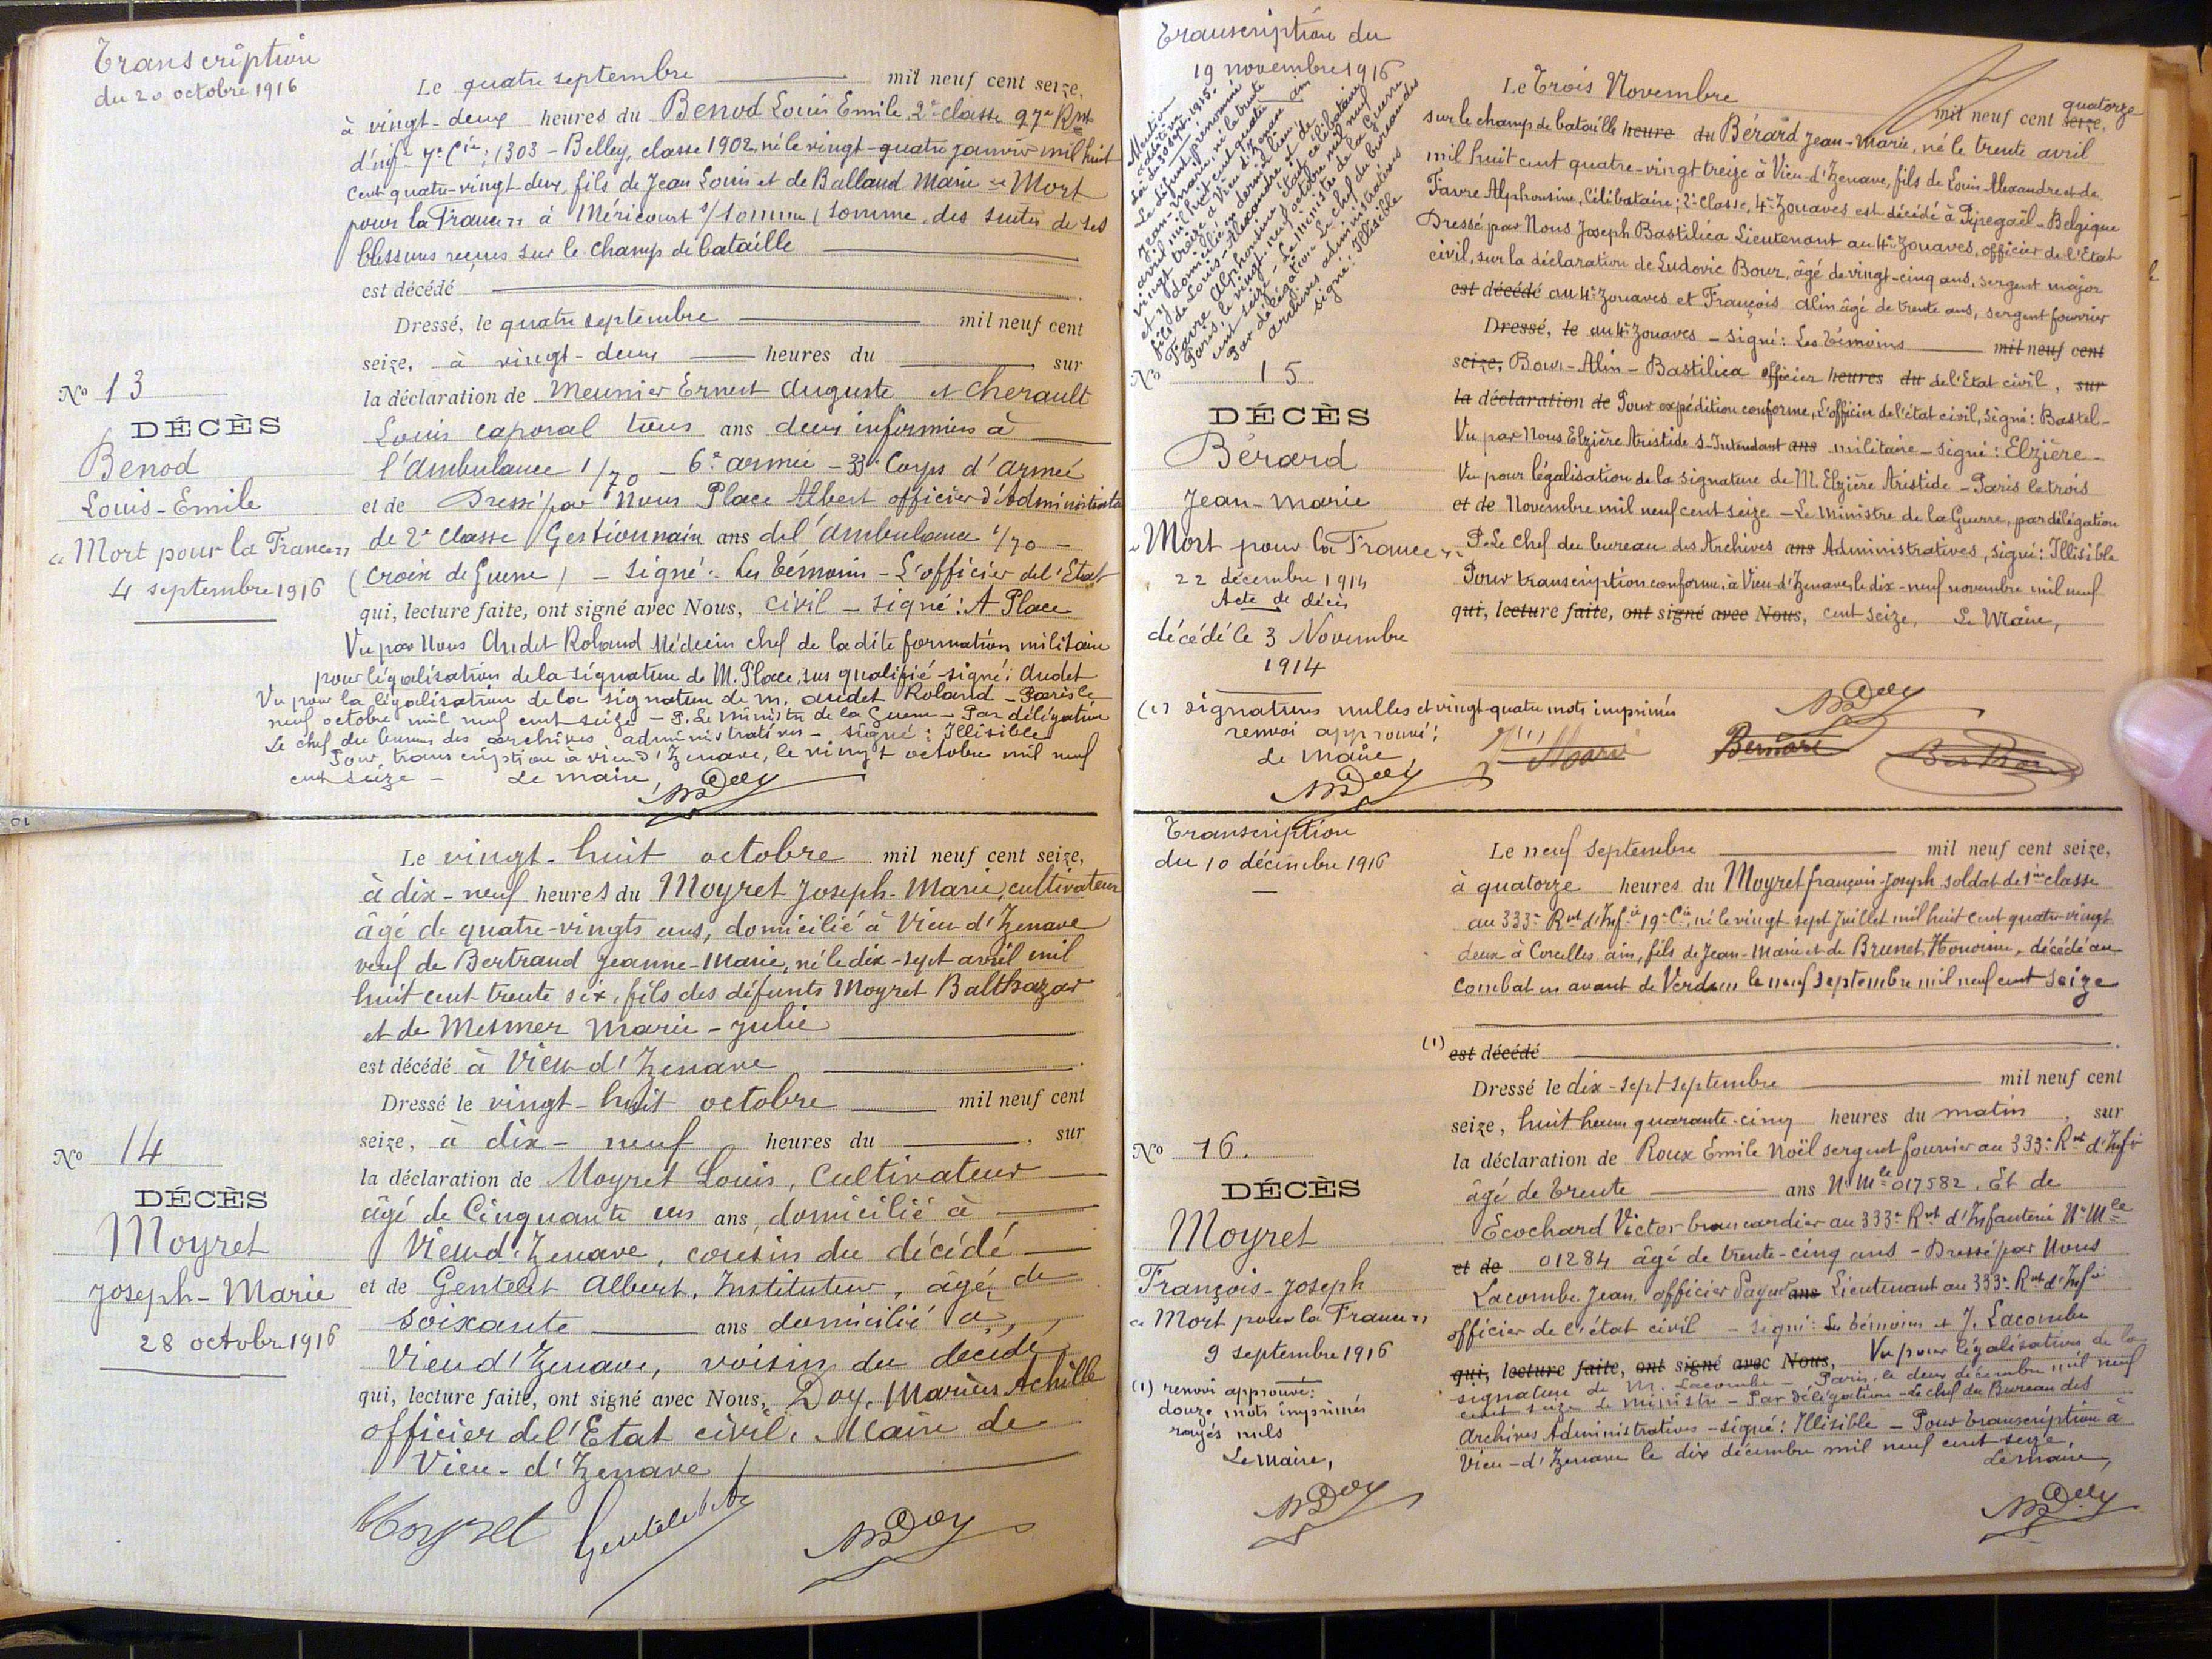 Transcription
du 20 octobre 1916
Le quatre septembre mil neuf cent seize,
à vingt-deux heures du Benod Louis Emile, 2e classe 97e Rmt
d'infie 7e Cie, 1303 - Belley, classe 1902, né le vingt-quatre janvier mil huit
cent quatre-vingt deux, fils de Jean Louis et de Balland Marie "Mort
pour la France" à Méricourt s/Somme (Somme, des suites de ses
blessures reçues sur le champ de bataille
est décédé
Dressé, le quatre septembre mil neuf cent
seize, à vingt-deux heures du sur
la déclaration de Meunier Ernest Auguste et Cherault
Louis caporal tous ans deux infirmiers à
l'Ambulance 1/70 - 6e armée - 33e Corps d'armée
et de Dressé par Nous Place Albert officier d'Administration
de 2e classe Gestionnaire ans de l'Ambulance 1/70 -
(Croix de Guerre) - signé: Les témoins - L'officier de l'Etat
qui, lecture faite, ont signé avec Nous, civil - signé: A Place
Vu par Nous Andet Roland Médecin chef de la dite formation militaire
pour légalisation de la signature de M. Place, sus qualifié - signé: Andet
Vu pour la légalisation de la signature de M. Andet Roland - Paris le
neuf octobre mil neuf cent seize - P. Le Ministre de la Guerre - Par délégation
Le chef du bureau des archives administratives - signé: Illisible
Pour transcription à Vieu d'Izenave, le vingt octobre mil neuf
cent seize - Le maire,
MDoy
No 13
DÉCÈS
Benod
Louis-Emile
"Mort pour la France"
4 septembre 1916
Le vingt-huit octobre mil neuf cent seize,
à dix-neuf heures du Moyret Joseph-Marie, cultivateur
âgé de quatre-vingts ans, domicilié à Vieu d'Izenave
veuf de Bertrand Jeanne-Marie, né le dix-sept avril mil
huit cent trente six, fils des défunts Moyret Balthazar
et de Mesmer Marie-Julie
est décédé à Vieu d'Izenave
Dressé le vingt-huit octobre mil neuf cent
seize, à dix-neuf heures du , sur
la déclaration de Moyret Louis, Cultivateur
âgé de Cinquante un ans, domicilié à
Vieu d'Izenave, cousin du décédé
et de Gentelet Albert, Instituteur, âgé de
soixante ans domicilié à
Vieu d'Izenave, voisin du décédé
qui, lecture faite, ont signé avec Nous, Doy, Marius Achille
officier de l'Etat civil, Maire de
Vieu-d'Izenave
Moyret Gentelet MDoy
No 14
DÉCÈS
Moyret
Joseph-Marie
28 octobre 1916
Transcription du
19 novembre 1916
Mention
rective
Loi du 30 Sept. 1915.
Le défunt, prénommé
Jean-Marie, né le trente
avril mil huit cent quatre
vingt treize à Vieu d'Izenave ain
et y domicilié en dernier lieu
fils de Louis-Alexandre et de
Favre Alphonsine, était célibataire
Paris, le vingt-neuf octobre mil neuf
cent seize - Le Ministre de la Guerre
Par délégation Le chef du bureau des
archives administratives
signé: Illisible
No 15
DÉCÈS
Bérard
Jean-Marie
"Mort pour la France"
22 décembre 1914
Acte de décès
décédé le 3 Novembre
1914
Le Trois Novembre mil neuf cent seize, quatorze
sur le champ de bataille heure du Bérard Jean-Marie, né le trente avril
mil huit cent quatre-vingt treize à Vieu-d'Izenave, fils de Louis-Alexandre et de
Favre Alphonsine, Célibataire; 2e classe, 4e Zouaves est décédé à Pipegaël - Belgique
Dressé par Nous Joseph Bastilica Lieutenant au 4e Zouaves, officier de l'Etat
civil, sur la déclaration de Ludovic Bour, âgé de vingt-cinq ans, sergent major
est décédé au 4e Zouaves et François Alin âgé de trente ans, sergent fourrier
Dressé, le au 4e Zouaves - signé: Les témoins mil neuf cent
seize, Bour - Alin - Bastilica officier heures du de l'Etat civil, sur
la déclaration de Pour expédition conforme, L'officier de l'état civil, signé: Bastel-
Vu par Nous Elzière Aristide S-Intendant ans militaire - signé: Elzière -
Vu pour légalisation de la signature de M. Elzière Aristide - Paris le trois
et de Novembre mil neuf cent seize - Le Ministre de la Guerre, par délégation
P. Le chef du bureau des Archives ans Administratives, signé: Illisible
Pour transcription conforme, à Vieu-d'Izenave, le dix-neuf novembre mil neuf
qui, lecture faite, ont signé avec Nous, cent seize, Le Maire,
MDoy
(1) signatures nulles et vingt-quatre mots imprimés
renvoi approuvé:
Le Maire
MDoy
Transcription
du 10 décembre 1916
Le neuf septembre mil neuf cent seize,
à quatorze heures du Moyret françois-Joseph soldat de 1ère classe
au 333e Rmt d'Infie 19e Cie, né le vingt sept Juillet mil huit cent quatre-vingt
deux à Corcelles, ain, fils de Jean-Marie et de Brunet Honorine, décédé au
combat en avant de Verdun le neuf septembre mil neuf cent seize
(1) est décédé
Dressé le dix-sept septembre mil neuf cent
seize, huit heures quarante-cinq heures du matin, sur
la déclaration de Roux Emile Noël sergent fourrier au 333e Rmt d'Infie
âgé de trente ans No Mle 017582. Et de
Ecochard Victor brancardier au 333e Rmt d'Infanterie No Mle
et de 01284 âgé de trente-cinq ans - Dressé par Nous
Lacombe Jean, officier Payeur ans Lieutenant au 333e Rmt d'Infie
officier de l'état civil - signé: Les témoins et J. Lacombe
qui, lecture faite, ont signé avec Nous, Vu pour légalisation de la
signature de M. Lacombe - Paris, le deux décembre mil neuf
cent seize Le Ministre - Par délégation - Le chef du Bureau des
Archives Administratives - signé: Illisible - Pour transcription à
Vieu-d'Izenave le dix décembre mil neuf cent seize,
Le Maire,
MDoy
No 16.
DÉCÈS
Moyret
François-Joseph
"Mort pour la France"
9 septembre 1916
(1) renvoi approuvé:
douze mots imprimés
rayés nuls
Le Maire,
MDoy